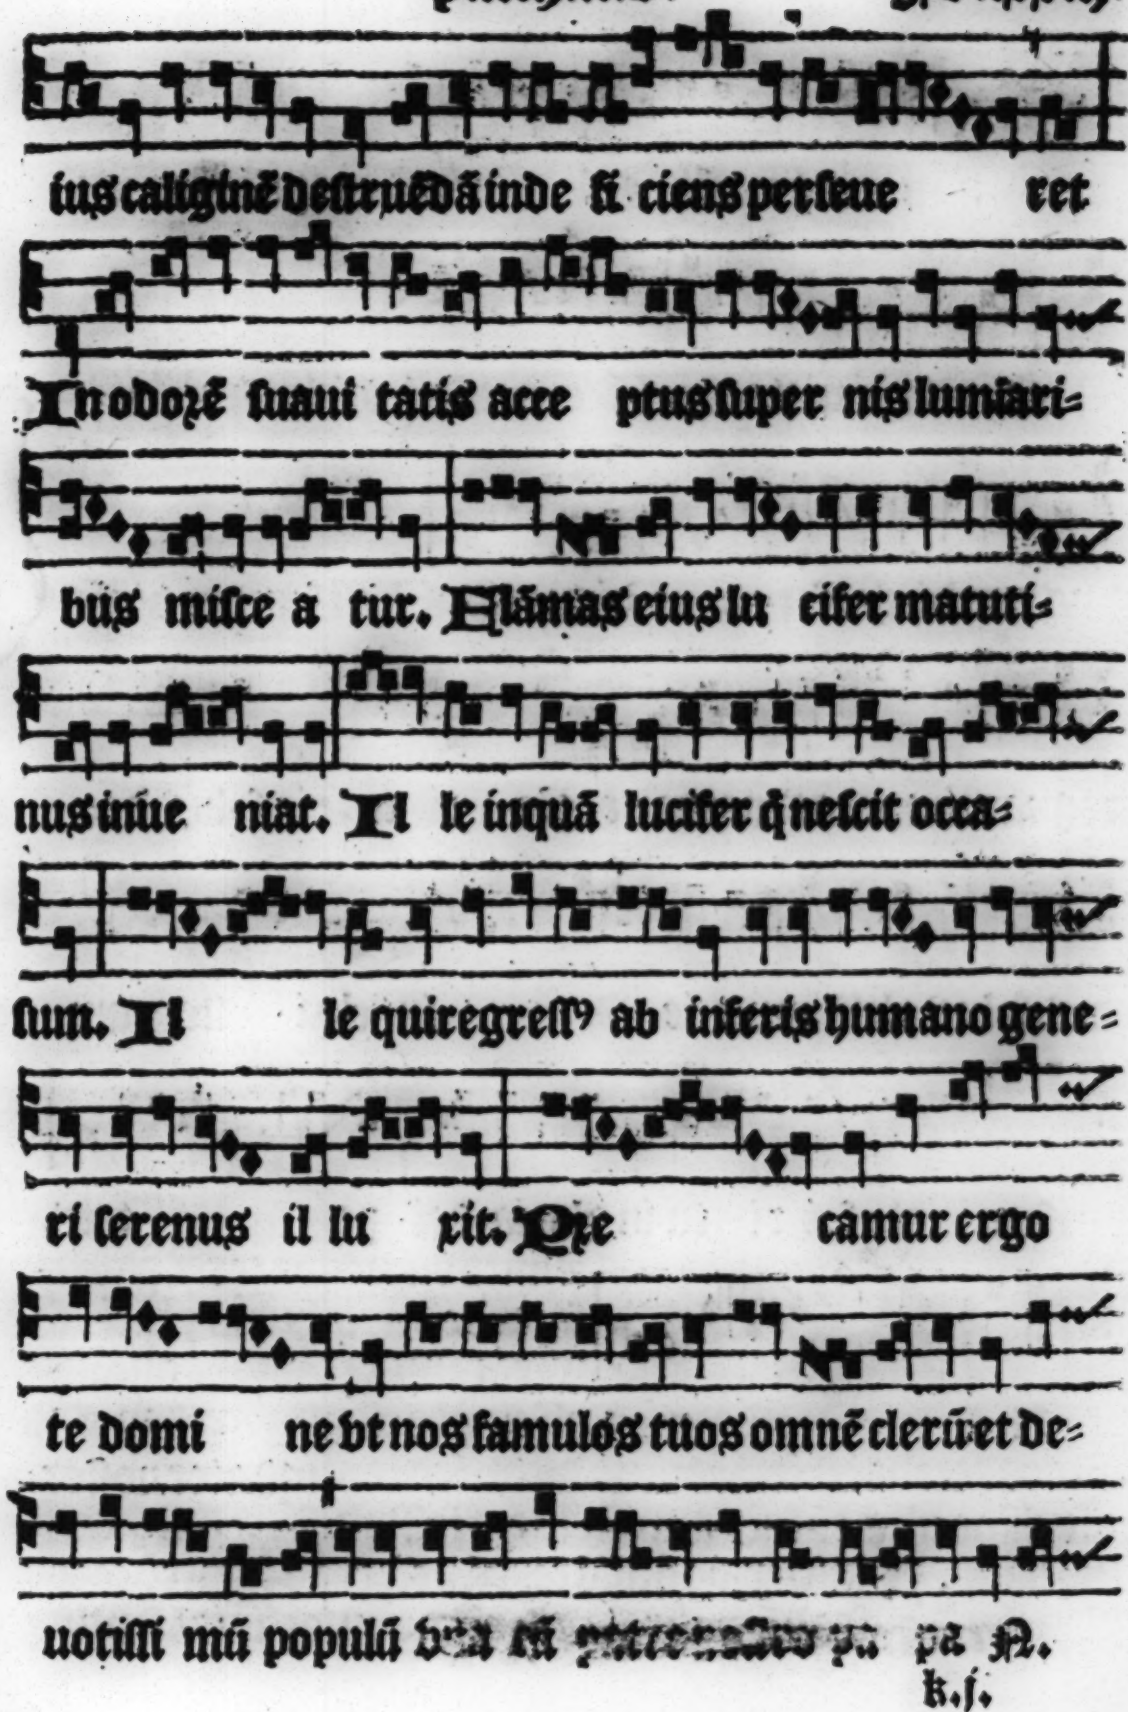 ius caliginē destruēdā inde fi ciens perseue ret
In odorē suaui tatis acce ptus super nis lumīari-
bus misce a tur. Flāmas eius lu cifer matuti-
nus inue niat. Il le inquā lucifer q̄ nescit occa-
sum. Il le qui regressꝰ ab inferis humano gene-
ri serenus il lu xit. Pre camur ergo
te domi ne vt nos famulos tuos omnē clerū et de-
uotissi mū populū vna cū pa pa N.
k.j.